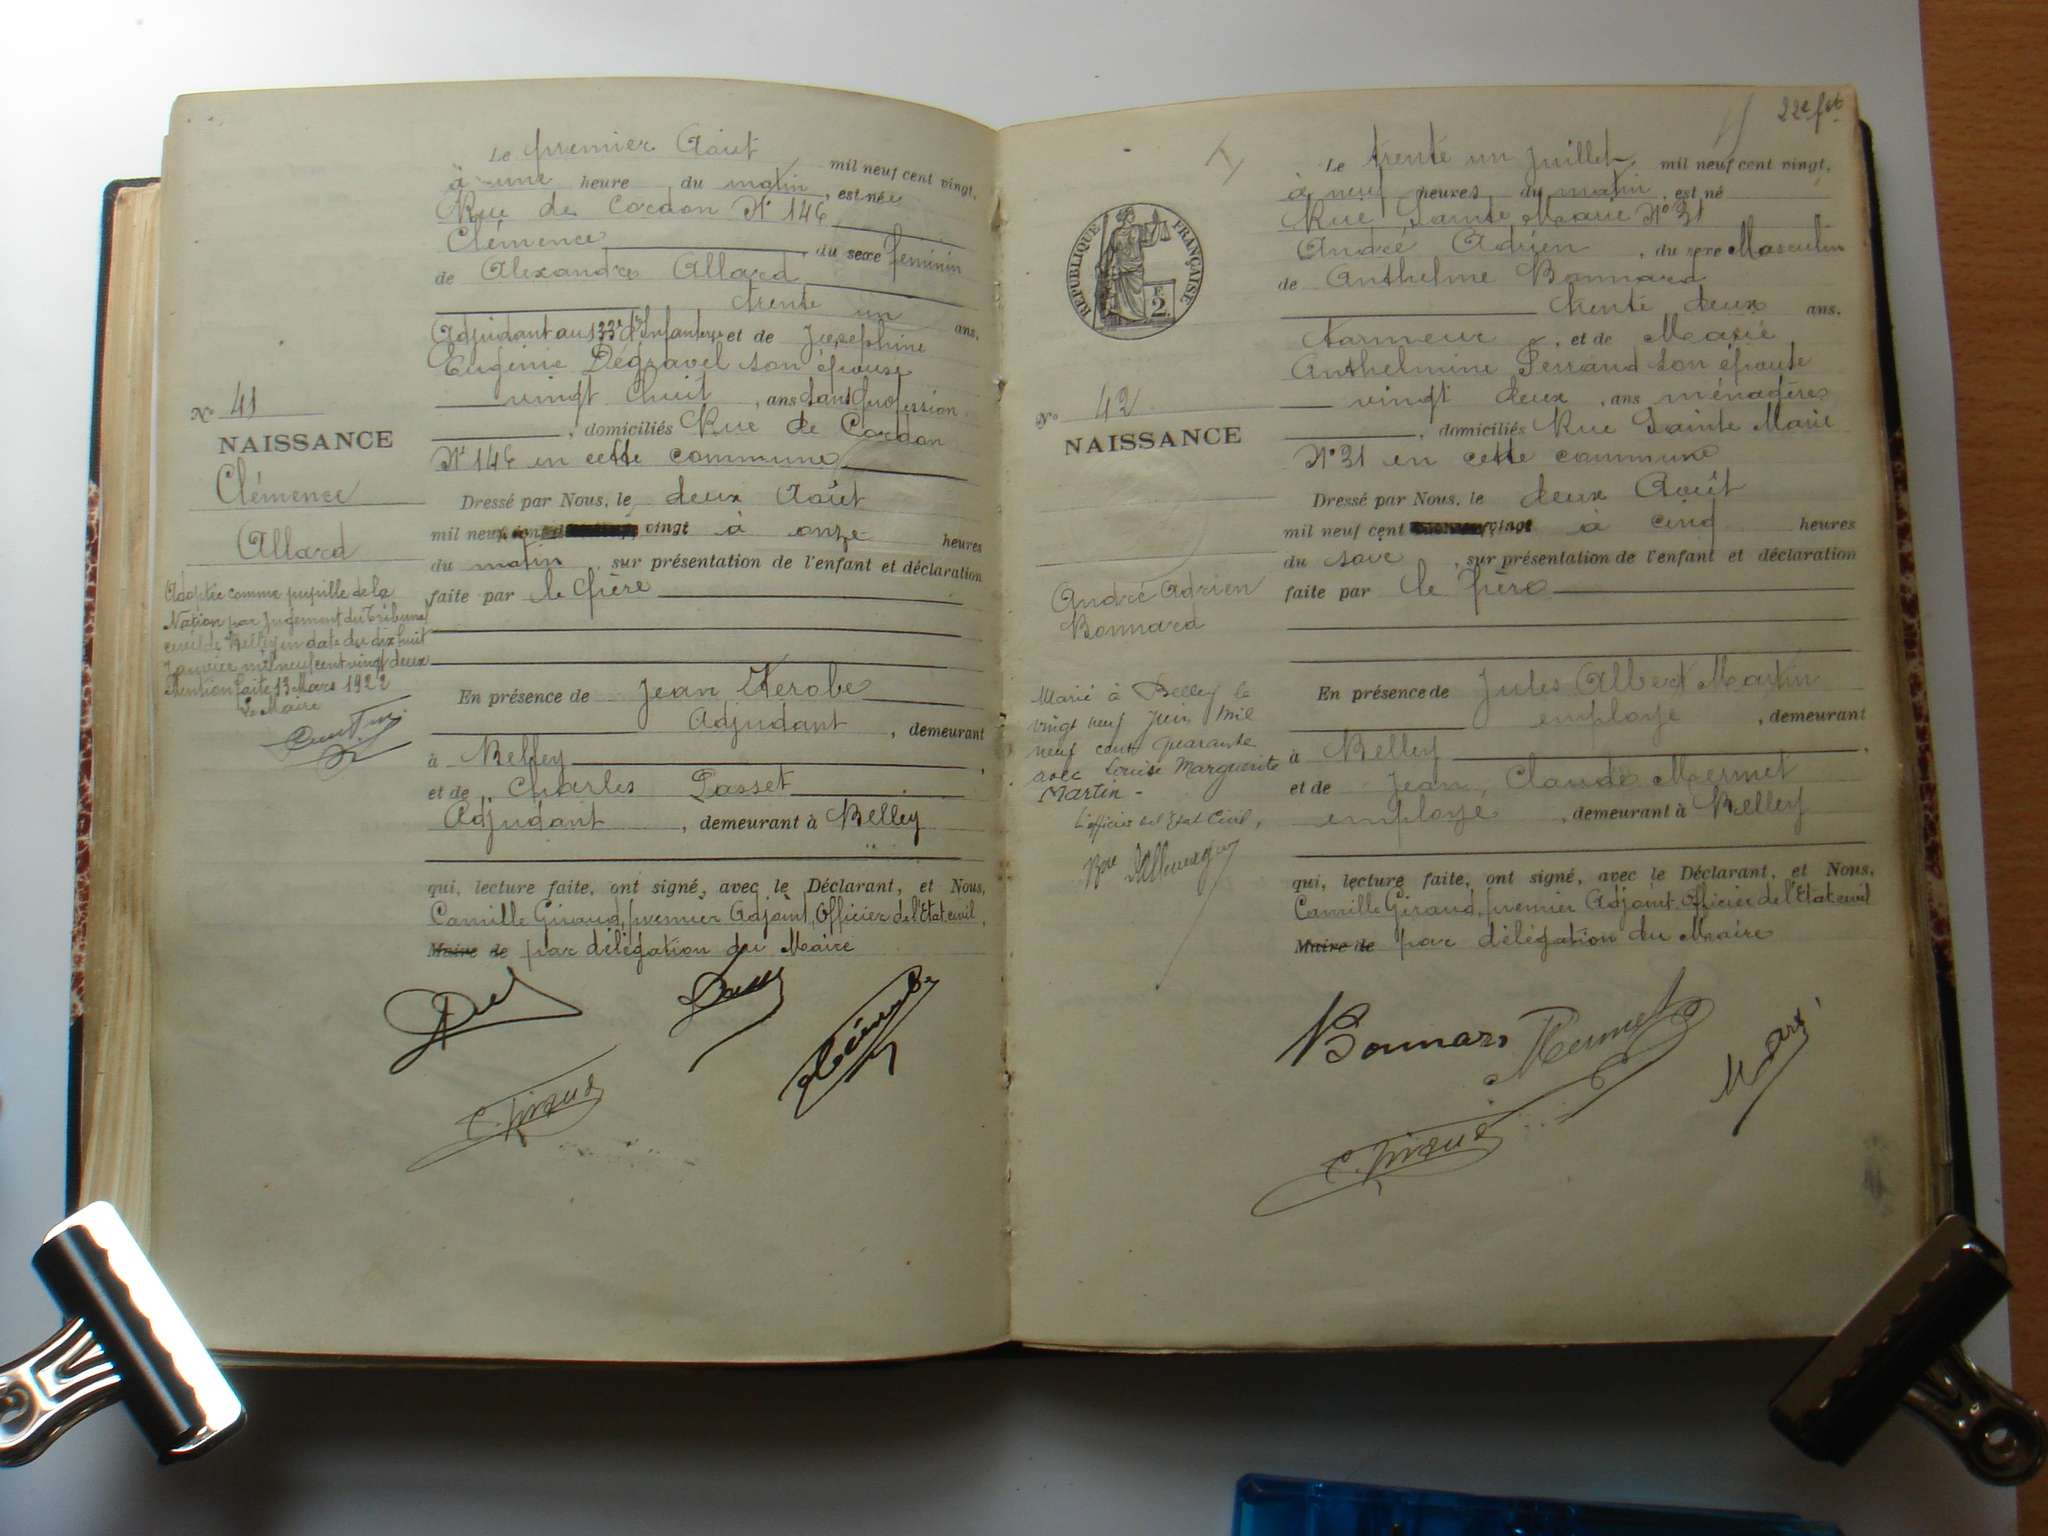 Le premier Août mil neuf cent vingt,
à une heure du matin, est née
Rue de Cordon N° 146
Clémence, du sexe féminin
de Alexandre Allard
trente un ans,
Adjudant au 133e d'Infanterie et de Joséphine
Eugénie Dégravel son épouse
vingt huit, ans sans profession
, domiciliés Rue de Cordon
N° 146 en cette commune
N° 41
NAISSANCE
Clémence
Allard
Adoptée comme pupille de la
Nation par Jugement du Tribunal
civil de Belley en date du dix huit
Janvier mil neuf cent vingt deux
Mention faite 13 Mars 1922
Le Maire
Dressé par Nous, le deux Août
mil neuf cent vingt à onze heures
du matin, sur présentation de l'enfant et déclaration
faite par le Père
En présence de Jean Kerobe
Adjudant, demeurant
à Belley,
et de Charles Passet
Adjudant, demeurant à Belley
qui, lecture faite, ont signé, avec le Déclarant, et Nous,
Camille Giraud, premier Adjoint, Officier de l'Etat civil,
Maire de par délégation du Maire
C. Giraud
22e fet
Le trente un Juillet mil neuf cent vingt,
à neuf heures du matin, est né
Rue Sainte Marie N° 31
André Adrien, du sexe Masculin
de Anthelme Bonnard
trente deux ans,
Tarmeur, et de Marie
Anthelmine Perraud son épouse
vingt deux, ans ménagère
, domiciliés Rue Sainte Marie
N° 31 en cette commune
REPUBLIQUE FRANÇAISE
F.
2
N° 42
NAISSANCE
André Adrien
Bonnard
Marié à Belley le
vingt neuf Juin Mil
neuf cent quarante
avec Louise Marguerite
Martin -
L'officier de l'Etat Civil,
Dressé par Nous, le deux Août
mil neuf cent vingt à cinq heures
du soir, sur présentation de l'enfant et déclaration
faite par le Père
En présence de Jules Albert Martin
employé, demeurant
à Belley,
et de Jean, Claude Mermet
employé, demeurant à Belley
qui, lecture faite, ont signé, avec le Déclarant, et Nous,
Camille Giraud, premier Adjoint, Officier de l'Etat civil
Maire de par délégation du Maire
Bonnard Mermet
C. Giraud